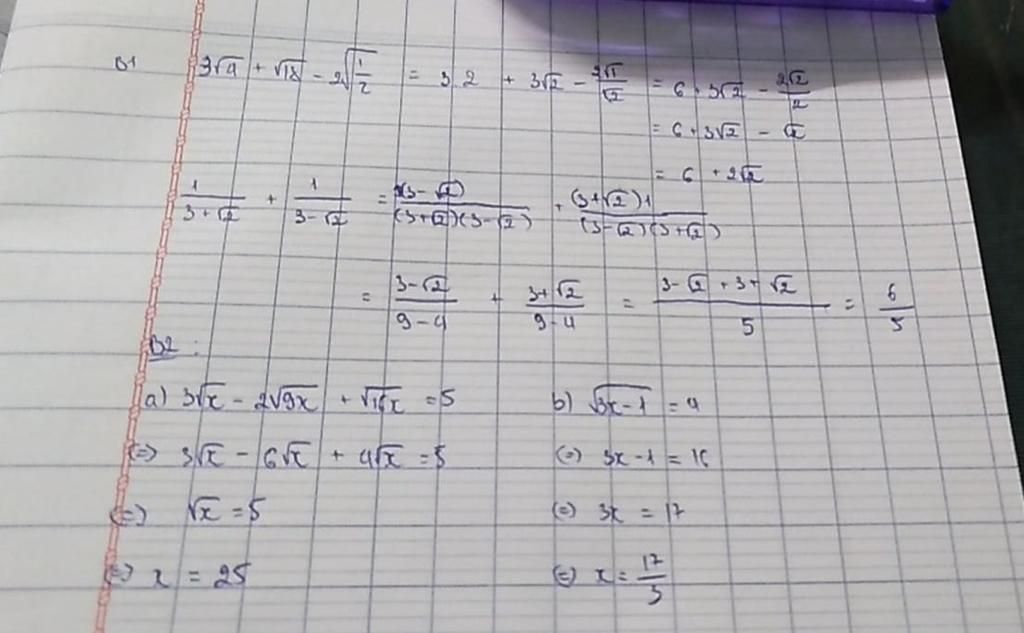 B1 3√4 + √18 - 2√(1/2) = 3.2 + 3√2 - 2√1/√2 = 6 + 3√2 - 2√2/2
= 6 + 3√2 - √2
= 6 + 2√2
1/(3+√2) + 1/(3-√2) = 1(3-√2)/((3+√2)(3-√2)) + (3+√2)1/((3-√2)(3+√2))
= (3-√2)/(9-4) + (3+√2)/(9-4) = (3-√2+3+√2)/5 = 6/5
B2 :
a) 3√x - 2√9x + √16x = 5
(=) 3√x - 6√x + 4√x = 5
(=) √x = 5
(=) x = 25
b) √(3x-1) = 4
(=) 3x-1 = 16
(=) 3x = 17
(=) x = 17/3